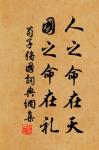 人之命在天
國之命在礼
荀子強國詞典網集